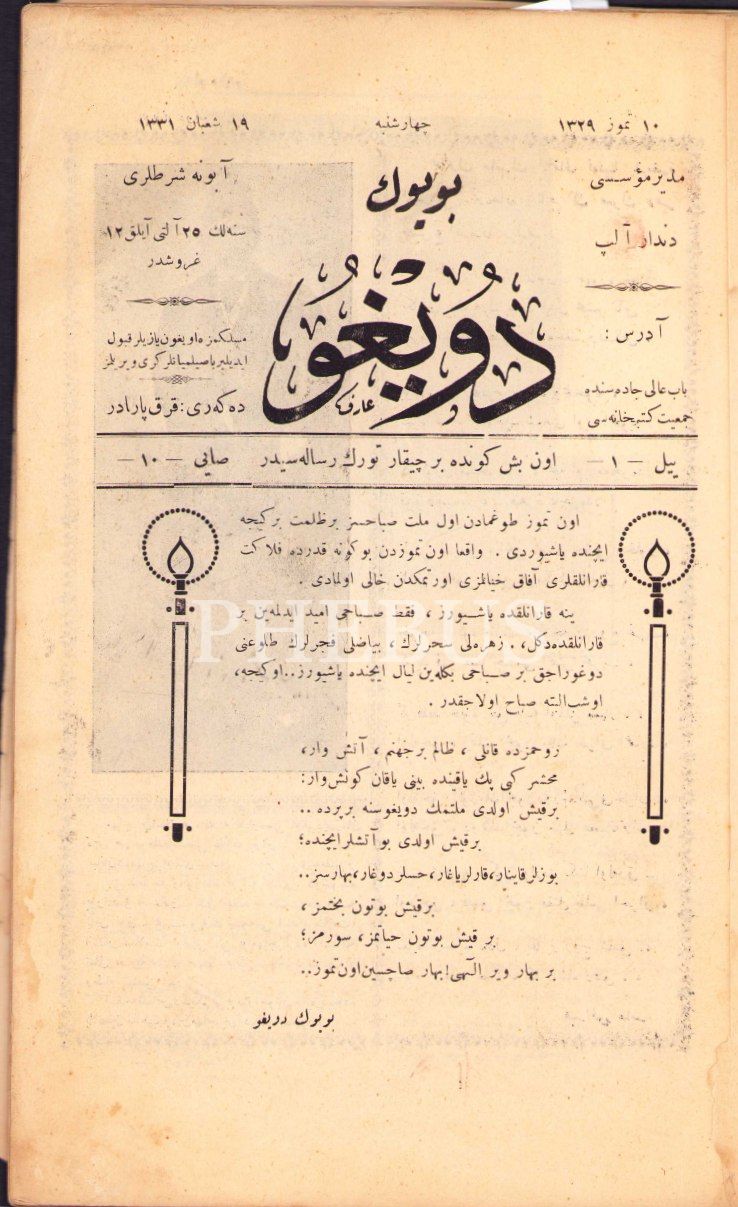 ١٠ تموز ١٣٢٩
چهارشنبه
١٩ شعبان ١٣٣١
مدير مؤسسى
دندار آلپ
آدرس :
باب عالى جاده سنده
جمعيت كتبخانه سى
بويوك
دويغو
عارف
آبونه شرطلرى
سنه لك ٢٥ آلتى آيلق ١٢
غروشدر
مسلكمزه اويغون يازيلر قبول
ايديلير باصيلميانلر كرى ويريلمز
ده كه رى : قرق پارادر
ييل — ١ — اون بش كونده بر چيقار تورك رساله سيدر صايى — ١٠ —
اون تموز طوغمادن اول ملت صباحسز بر ظلمت بر كيجه
ايچنده ياشيوردى . واقعا اون تموزدن بوكونه قدرده فلاكت
قارانلقلرى آفاق خيالمزى اورتمكدن خالى اولمادى .
ينه قارانلقده ياشيورز ، فقط صباحى اميد ايدلمه ين بر
قارانلقده دكل ، . زهره لى سحرلرك ، بياضلى فجرلرك طلوعنى
دوغوراجق بر صباحى بكله ين ليال ايچنده ياشيورز .. اوكيجه ،
اوشب البته صباح اولاجقدر .
روحمزده قانلى ، ظالم بر جهنم ، آتش وار ،
محشر كبى پك ياقينده بينى ياقان كونش وار :
بر قيش اولدى ملتمك دويغوسنه بر پرده ..
بر قيش اولدى بو آتشلر ايچنده ؛
بوزلر قاينار ، قارلر ياغار ، حسلر دوغار ، بهارسز ..
بر قيش بوتون بختمز ،
بر قيش بوتون حياتمز ، سورمز ؛
بر بهار وير الٓهى ! بهار صاچسين اون تموز ..
بويوك دويغو
PHEBUS